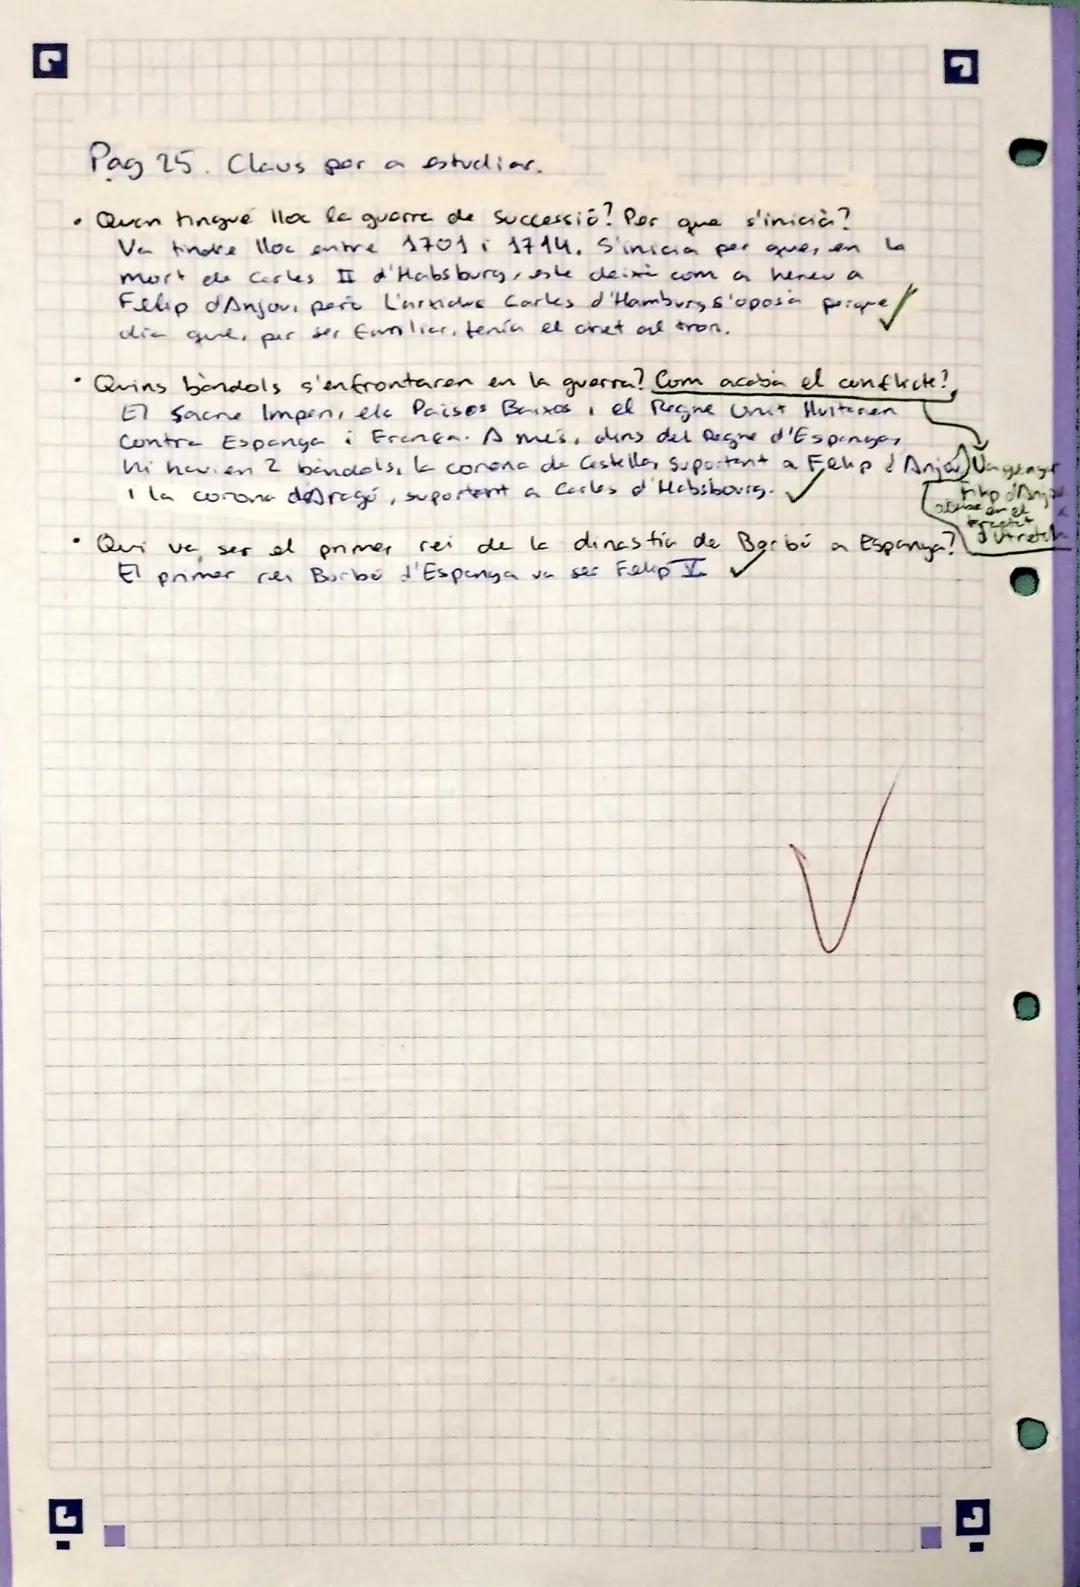 Pag 25. Claus per a estudiar.
• Quan tingué lloc la guerra de Successió? Per que s'inicià?
Va tindre lloc entre 1701 i 1714. S'inicia per que, en la
mort de Carles II d'Habsburg, este deixà com a hereu a
Felip d'Anjou, però L'arxiduc Carles d'Hamburg s'oposà perque
dia que, per ser familiar, tenía el dret al tron.
• Quins bàndols s'enfrontaren en la guerra? Com acabà el conflicte?
El Sacre Imperi, els Països Baixos i el Regne Unit lluitaren
contra Espanya i França. A més, dins del Regne d'Espanya,
hi havien 2 bàndols, la corona de Castella, suportant a Felip d'Anjou
i la corona d'Aragó, suportant a Carles d'Habsbourg.
Va guanyar
Felip d'Anjou
acaba en el
tractat
d'Utretch
• Qui va ser el primer rei de la dinastia de Borbó a Espanya?
El primer rei Borbó d'Espanya va ser Felip V.